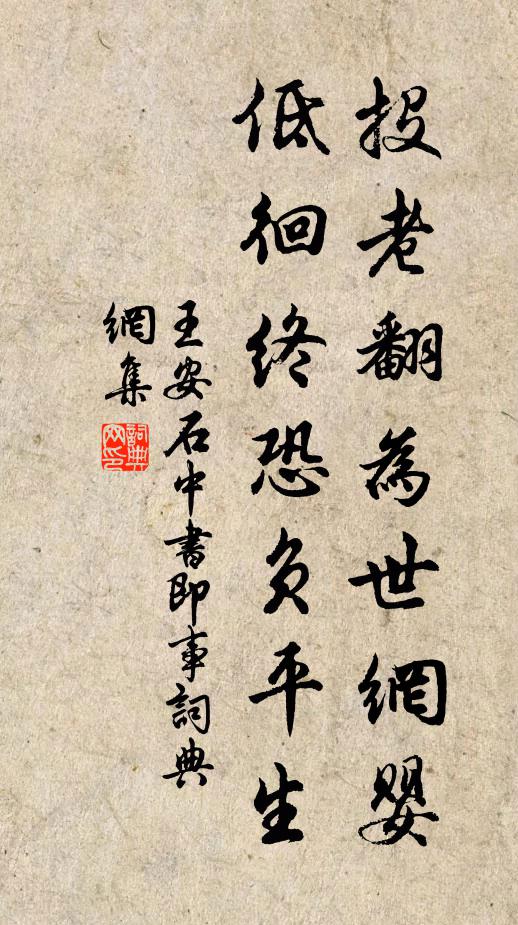 投老翻為世網嬰
低徊終恐負平生
王安石中書即事詞典
網集
詞典
网印